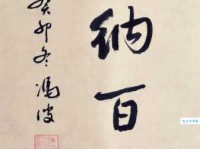 纳百
癸卯冬冯波